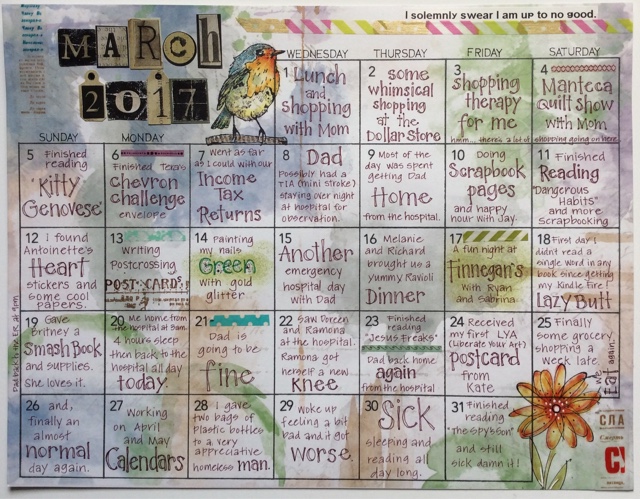 I solemnly swear I am up to no good.
MARch
2017
WEDNESDAY
THURSDAY
FRIDAY
SATURDAY
SUNDAY
MONDAY
1 Lunch
and
shopping
with Mom
2 some
whimsical
shopping
at the
Dollar Store
3
shopping
therapy
for me
hmm... there's a lot of
4
Manteca
Quilt show
with Mom
shopping going on here
5 Finished
reading
"Kitty
Genovese"
6
Finished Texas
chevron
challenge
envelope
7 Went as far
as I could with our
Income
Tax
Returns
8 Dad
possibly had a
TIA (mini stroke)
staying over night
at hospital for
observation.
9 Most of the
day was spent
getting Dad
Home
from the hospital.
10 Doing
Scrapbook
pages
and happy
hour with Jay.
11 Finished
Reading
"Dangerous
Habits"
and more
scrapbooking
12 I found
Antoinette's
Heart
stickers and
some cool
papers.
13
Writing
Postcrossing
POST CARDS!
14 Painting
my nails
Green
with gold
glitter
15
Another
emergency
hospital day
with Dad
16 Melanie
and Richard
brought us a
yummy Ravioli
Dinner
17
A fun night at
Finnegan's
with Ryan
and Sabrina.
18 First day I
didn't read a
single word in any
book since getting
my Kindle Fire!
LAZY Butt
19 Gave
Britney a
Smash Book
and supplies.
She loves it.
Dad back to the ER at 9pm
20 Me home from
the hospital at 3am.
4 hours sleep
then back to the
hospital all day
today.
21
Dad is
going to be
fine
22 Saw Doreen
and Ramona
at the hospital.
Ramona got
herself a new
Knee
23 Finished
reading
"Jesus Freaks"
Dad back home
again
from the hospital
24 Received
my first LYA
(Liberate Your Art)
postcard
from
Kate
25 Finally
some grocery
shopping a
week late.
we
Eat again.
26 and,
finally an
almost
normal
day again.
27
Working
on April
and May
Calendars
28 I gave
two bags of
plastic bottles
to a very
appreciative
homeless man.
29 Woke up
feeling a bit
bad and it got
worse.
30
Sick
sleeping and
reading all
day long.
31 Finished
reading
"The Spy's Son"
and still
sick damn it!
СЛА